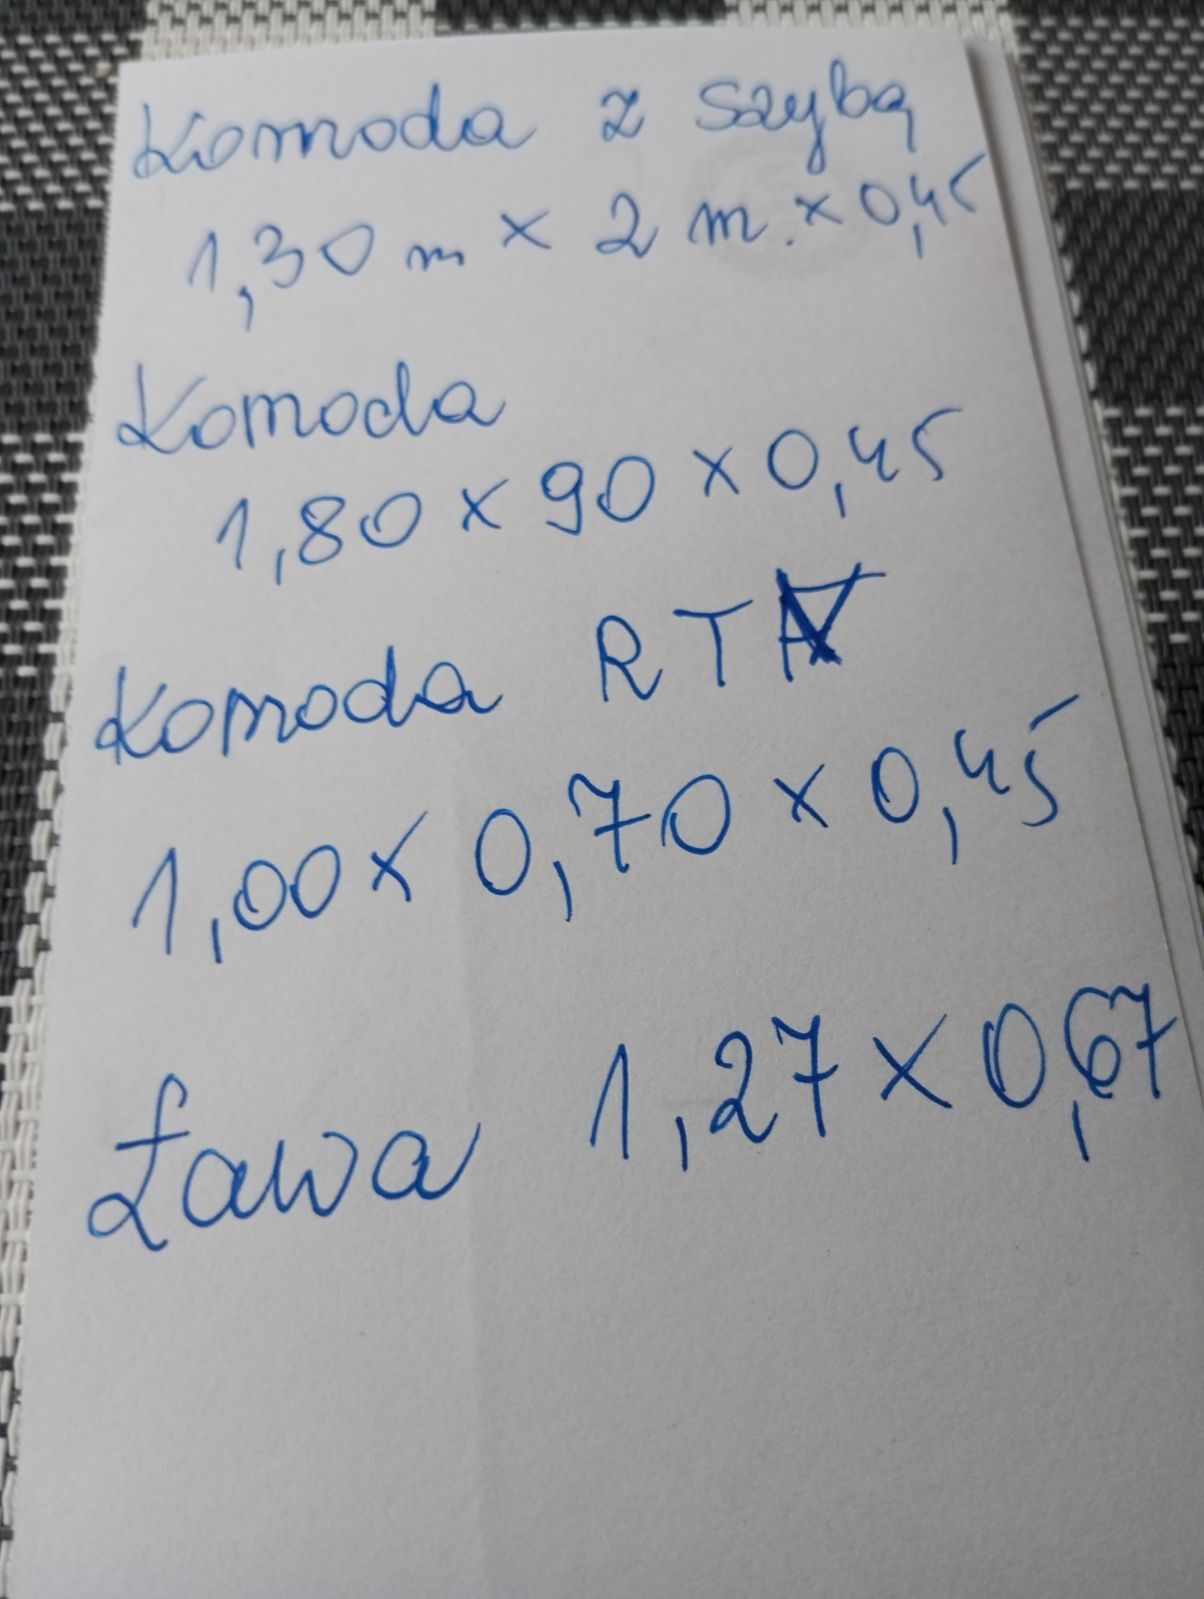 Komoda z szybą
1,30 m x 2 m. x 0,45
Komoda
1,80 x 90 x 0,45
Komoda RTV
1,00 x 0,70 x 0,45
Ława 1,27 x 0,67